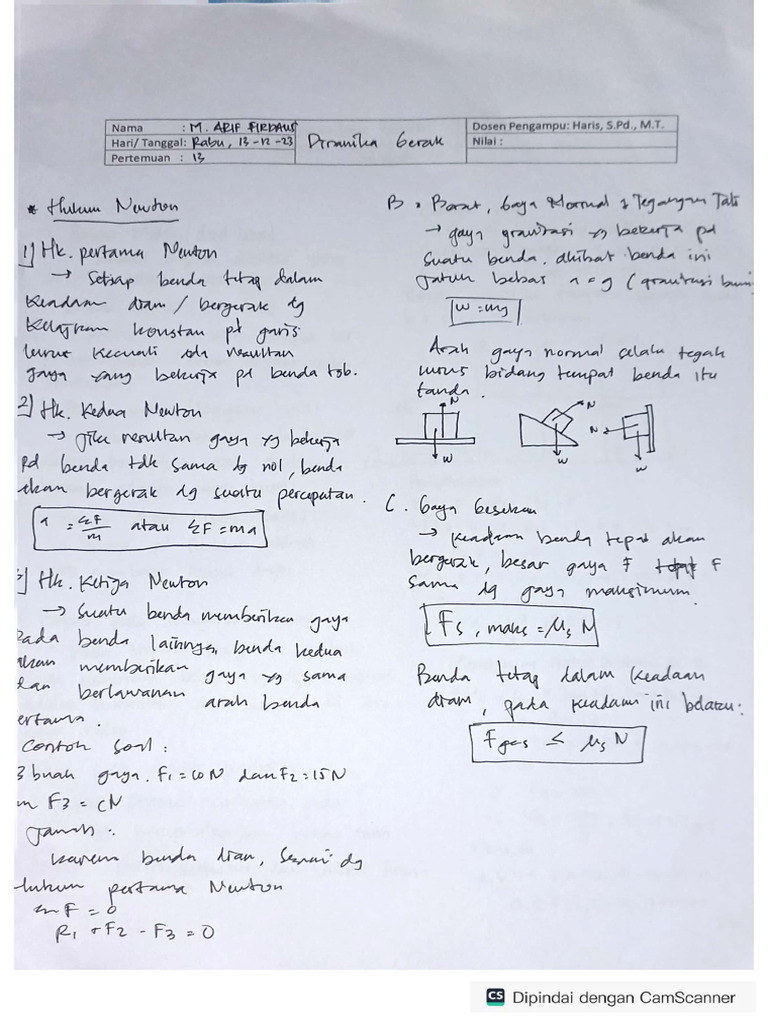 Nama : M. ARIF FIRDAUS
Hari/ Tanggal: Rabu, 13-12-23
Pertemuan : 13
Dinamika Gerak
Dosen Pengampu: Haris, S.Pd., M.T.
Nilai :
* Hukum Newton
1) Hk. pertama Newton
→ Setiap benda tetap dalam
Keadaan diam / bergerak dg
Kelajuan konstan pd garis
lurus kecuali ada resultan
gaya yang bekerja pd benda tsb.
2) Hk. Kedua Newton
→ jika resultan gaya yg bekerja
pd benda tdk sama dg nol, benda
akan bergerak dg suatu percepatan.
a = ΣF/m atau ΣF = ma
3) Hk. Ketiga Newton
→ Suatu benda memberikan gaya
pada benda lainnya, benda kedua
akan memberikan gaya yg sama
dan berlawanan arah benda
pertama.
Contoh Soal :
3 buah gaya. F1 = 10N dan F2 = 15N
F3 = CN
Jawab :
karena benda diam, sesuai dg
hukum pertama Newton
F = 0
F1 + F2 - F3 = 0
B. Berat, Gaya Normal & Tegangan Tali
→ gaya gravitasi yg bekerja pd
suatu benda. akibat benda ini
jatuh bebas a = g (gravitasi bumi
w = mg
Arah gaya normal selalu tegak
lurus bidang tempat benda itu
N
W
N
W
N
W
C. Gaya Gesekan
→ Keadaan benda tepat akan
bergerak, besar gaya F
sama dg gaya maksimum
Fs, maks = μs N
Benda tetap dalam keadaan
diam, pada keadaan ini belaku:
Fges ≤ μs N
CS Dipindai dengan CamScanner